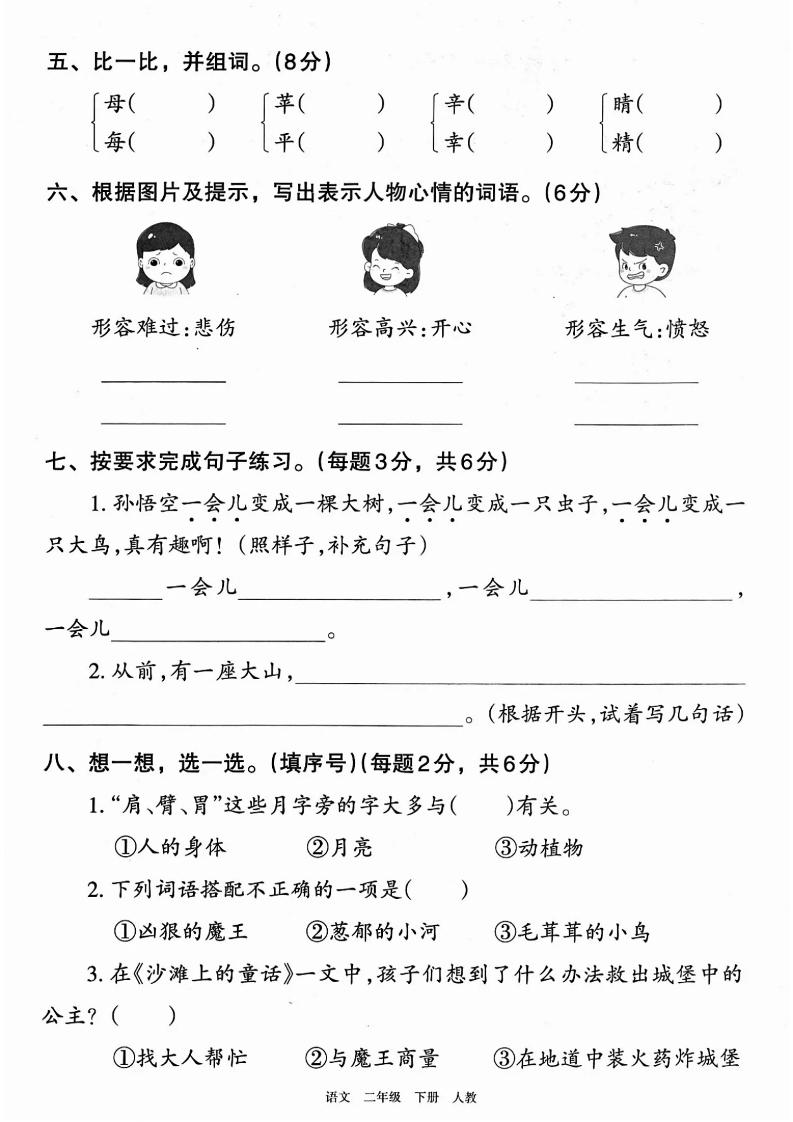 五、比一比，并组词。（8分）
母(　　) 苹(　　) 辛(　　) 睛(　　)
每(　　) 平(　　) 幸(　　) 精(　　)
六、根据图片及提示，写出表示人物心情的词语。（6分）
形容难过：悲伤 形容高兴：开心 形容生气：愤怒
七、按要求完成句子练习。（每题3分，共6分）
1. 孙悟空一会儿变成一棵大树，一会儿变成一只虫子，一会儿变成一
只大鸟，真有趣啊！（照样子，补充句子）
______一会儿________________，一会儿________________，
一会儿________________。
2. 从前，有一座大山，________________________________
________________________________。（根据开头，试着写几句话）
八、想一想，选一选。（填序号）（每题2分，共6分）
1. “肩、臂、胃”这些月字旁的字大多与(　　)有关。
①人的身体 ②月亮 ③动植物
2. 下列词语搭配不正确的一项是(　　)
①凶狠的魔王 ②葱郁的小河 ③毛茸茸的小鸟
3. 在《沙滩上的童话》一文中，孩子们想到了什么办法救出城堡中的
公主？(　　)
①找大人帮忙 ②与魔王商量 ③在地道中装火药炸城堡
语文 二年级 下册 人教